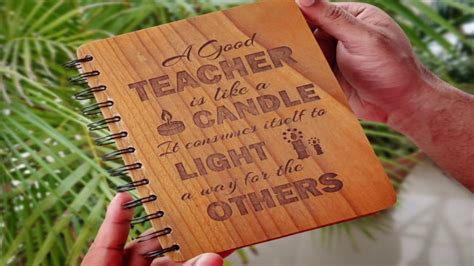 A Good
TEACHER
is like a
CANDLE
It consumes itself to
LIGHT
a way for the
OTHERS